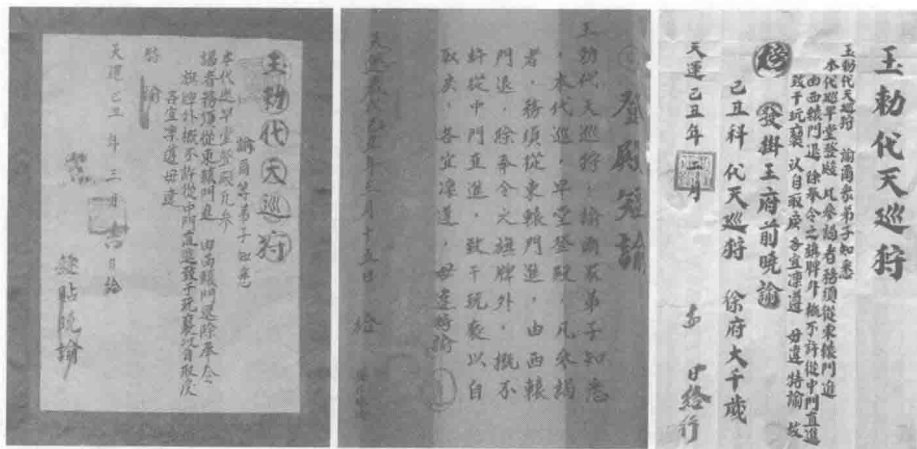 玉勅代天巡狩
諭爾等弟子知悉
本代巡早堂登殿凡參
謁者務須從東轅門進 由西轅門退除奉令
旗牌外概不許從中門直進致干玩褻以自取戾
各宜凜遵毋違
特諭
天運己丑年三月吉日給
貼曉諭
登殿曉諭
玉勅代天巡狩，諭爾眾弟子知悉
，本代巡，早堂登殿，凡參謁
者，務須從東轅門進，由西轅
門退，除奉令之旗牌外，概不
許從中門直進，致干玩褻以自
取戾，各宜凜遵，毋違特諭
天運歲次己丑年三月十五日 給
玉勅代天巡狩
玉勅代天巡狩 諭爾眾弟子知悉
本代巡早堂登殿 凡參謁者務須從東轅門進
由西轅門退 除奉令之旗牌外概不許從中門直進
致干玩褻 以自取戾 各宜凜遵 毋違 特諭 故
榜 發掛王府前曉諭
己丑科 代天巡狩 徐府大千歲
天運己丑年 三月 吉 日給行